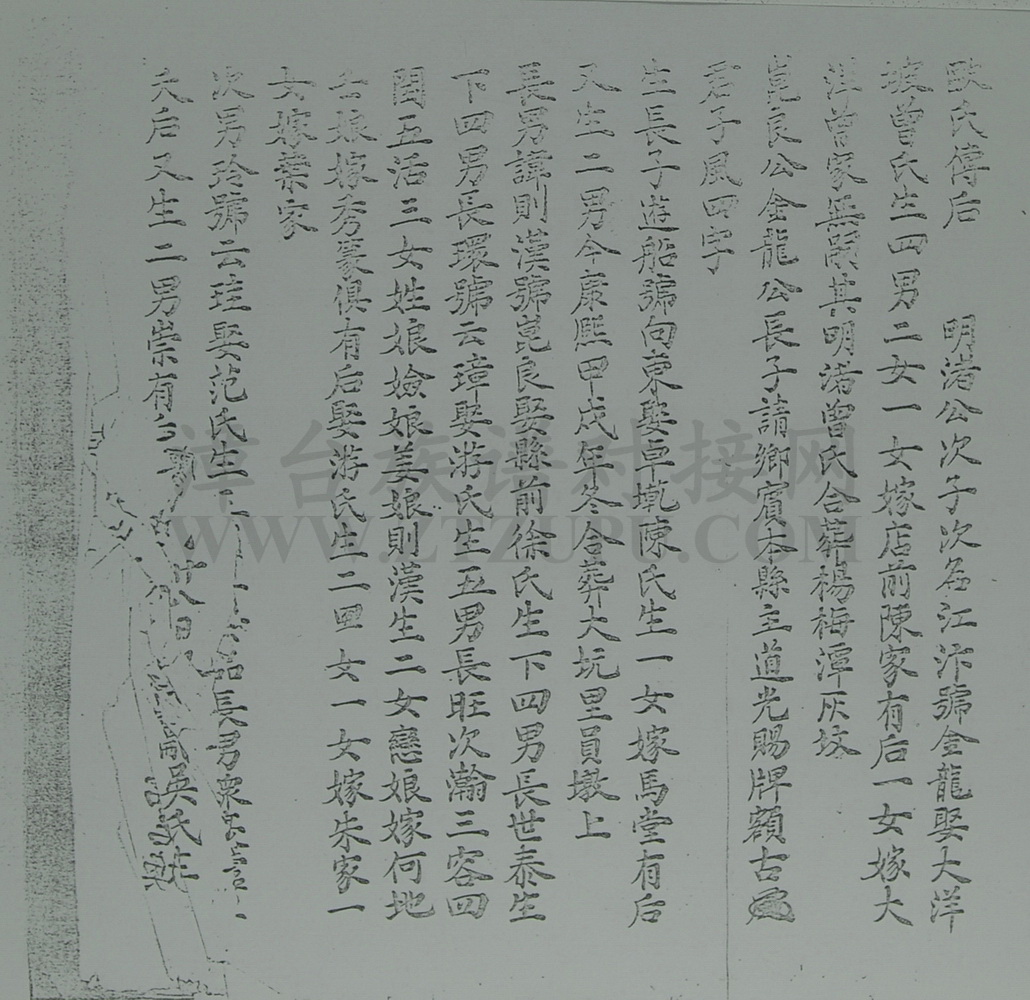 歐氏傳后　明渚公次子次名江汴號金龍娶大洋
坡曾氏生四男二女一女嫁店前陳家有后一女嫁大
洋曾家無嗣其明渚曾氏合葬楊梅潭灰坟
崑良公金龍公長子請鄉賓本縣主道光賜牌額古
君子風四字
生長子遊船號向東娶卓坑陳氏生一女嫁馬堂有后
又生二男今康熙甲戌年冬合葬大坑里員墩上
長男諱則漢號崑良娶縣前徐氏生下四男長世泰生
下四男長環號云璋娶游氏生五男長旺次瀚三容四
閏五活三女姓娘嬐娘姜娘則漢生二女戀娘嫁何地
七娘嫁秀篆俱有后娶游氏生二男女一女嫁朱家一
女嫁葉家
次男玲號云珪娶范氏生 長男
夭后又生二男崇有 廿八日 吳氏
漳台族谱对接网
WWW.ZTZUPU.COM